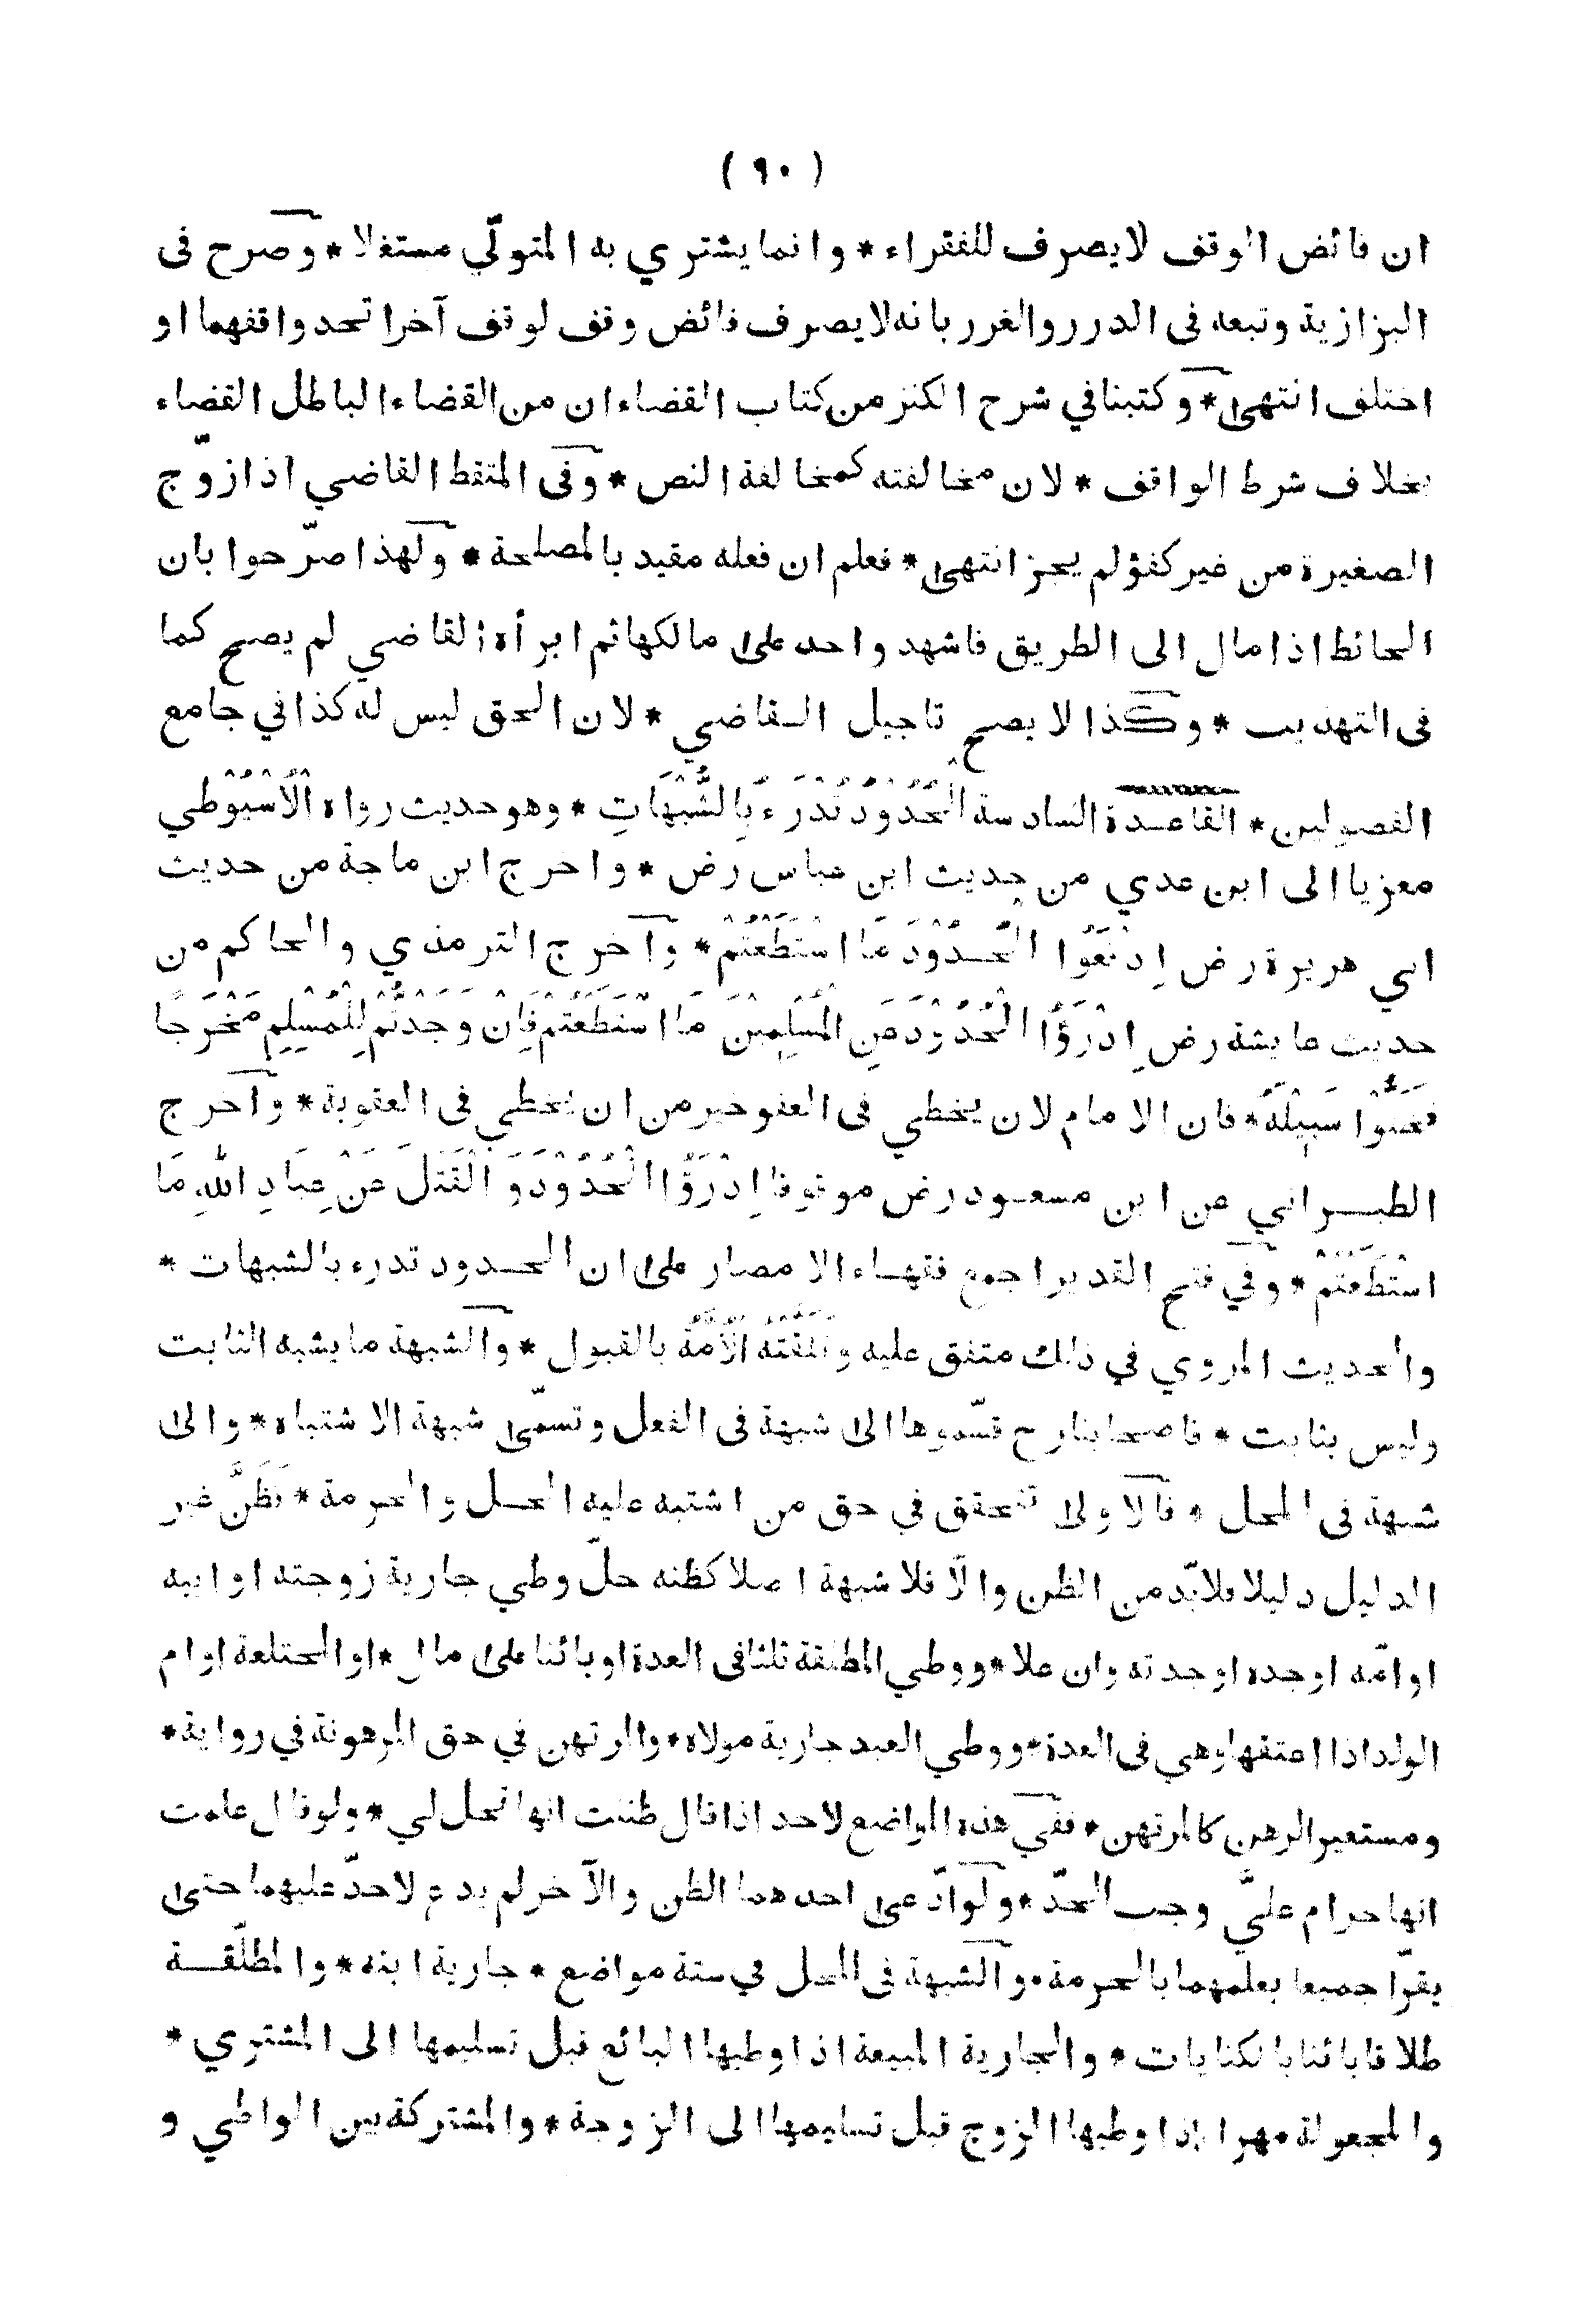 ( ٩٠ )
ان فائض الوقف لا يصرف للفقراء * وانما يشتري به المتولّي مستغلا * وصرح فى
البزازية وتبعه فى الدرر والغرر بانه لا يصرف فائض وقف لوقف آخر اتحد واقفهما او
اختلف انتهى * وكتبنا في شرح الكنز من كتاب القضاء ان من القضاء الباطل القضاء
بخلاف شرط الواقف * لان مخالفته كمخالفة النص * وفى الملتقط القاضي اذا زوّج
الصغيرة من غير كفؤ لم يجز انتهى * فعلم ان فعله مقيد بالمصلحة * ولهذا صرّحوا بان
الحائط اذا مال الى الطريق فاشهد واحد على مالكها ثم ابرأه القاضي لم يصح كما
فى التهذيب * وكذا لا يصح تاجيل القاضي * لان الحق ليس له كذا في جامع
الفصولين * القاعدة السادسة الْحُدُوْدُ تُدْرَءُ بِالشُّبْهَاتِ * وهو حديث رواه الْاُسْيُوْطي
معزيا الى ابن عدي من حديث ابن عباس رض * واخرج ابن ماجة من حديث
ابي هريرة رض اِدْفَعُوا الْحُدُوْدَ مَا اسْتَطَعْتُمْ * واخرج الترمذي والحاكم من
حديث عايشة رض اِدْرَؤُا الْحُدُوْدَ عَنِ الْمُسْلِمِيْنَ مَا اسْتَطَعْتُمْ فَاِنْ وَجَدْتُّمْ لِلْمُسْلِمِ مَخْرَجًا
فَخَلُّوْا سَبِيْلَهُ * فان الامام لان يخطي فى العفو خير من ان يخطي فى العقوبة * واخرج
الطبراني عن ابن مسعود رض موقوفا اِدْرَؤُا الْحُدُوْدَ وَ الْقَتْلَ عَنْ عِبَادِ اللّٰهِ مَا
اسْتَطَعْتُمْ * وفي فتح القدير اجمع فقهاء الامصار على ان الحدود تدرء بالشبهات *
والحديث المروي في ذلك متفق عليه وتَلَقَّتْهُ الْاُمَّةُ بالقبول * والشبهة ما يشبه الثابت
وليس بثابت * فاصحابنا رح قسّموها الى شبهة فى الفعل وتسمّى شبهة الاشتباه * والى
شبهة فى المحل * فالاولى تتحقق في حق من اشتبه عليه الحل والحرمة * فَظَنَّ غير
الدليل دليلا فلابّد من الظن والّا فلا شبهة اصلا كظنه حلّ وطي جارية زوجته او ابيه
او امّه او جده او جدته وان علا * ووطي المطلقة ثلثا فى العدة او بائنا على مال * او المختلعة او ام
الولد اذا اعتقها وهي فى العدة * ووطي العبد جارية مولاه * والمرتهن في حق المرهونة في رواية *
ومستعير الرهن كالمرتهن * ففي هذه المواضع لاحد اذا قال ظننت انها تحل لي * ولو قال علمت
انها حرام عليَّ وجب الحدّ * ولو ادّعى احدهما الظن والآخر لم يدع لا حدّ عليهما حتى
يقرّا جميعا بعلمهما بالحرمة * والشبهة فى المحل في ستة مواضع * جارية ابنه * والمطلّقة
طلاقا بائنا بالكنايات * والجارية المبيعة اذا وطيها البائع قبل تسليمها الى المشتري *
والمجعولة مهرا اذا وطيها الزوج قبل تسليمها الى الزوجة * والمشتركة بين الواطي و